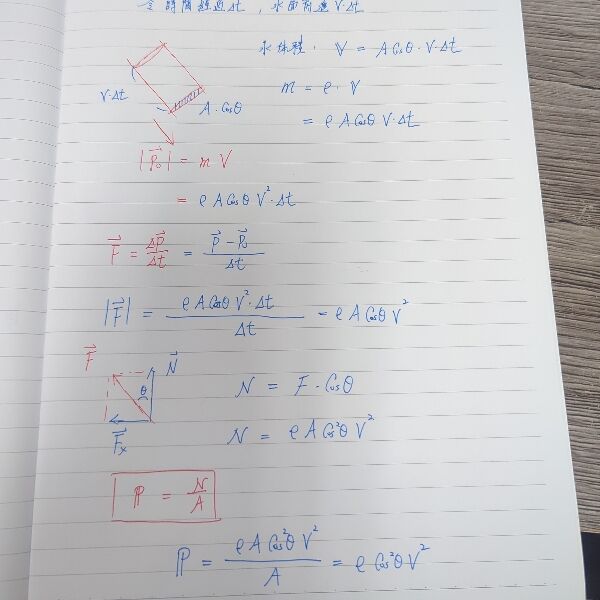 令 時間 經過 Δt , 水面前進 V·Δt
水体積 : V = A Cosθ · V·Δt
V·Δt
A·Cosθ
m = ρ · V
= ρ A Cosθ V·Δt
|P₀| = m V
= ρ A Cosθ V² · Δt
F = ΔP / Δt = P - P₀ / Δt
|F| = ρ A Cosθ V² · Δt / Δt = ρ A Cosθ V²
F N
θ
Fx
N = F · Cosθ
N = ρ A Cos²θ V²
P = N / A
P = ρ A Cos²θ V² / A = ρ Cos²θ V²